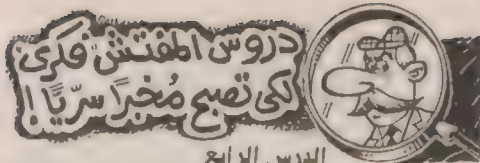 دروس المفتش فكرى
لكى تصبح مُخبرًا سرّيًّا !
الدرس الرابع